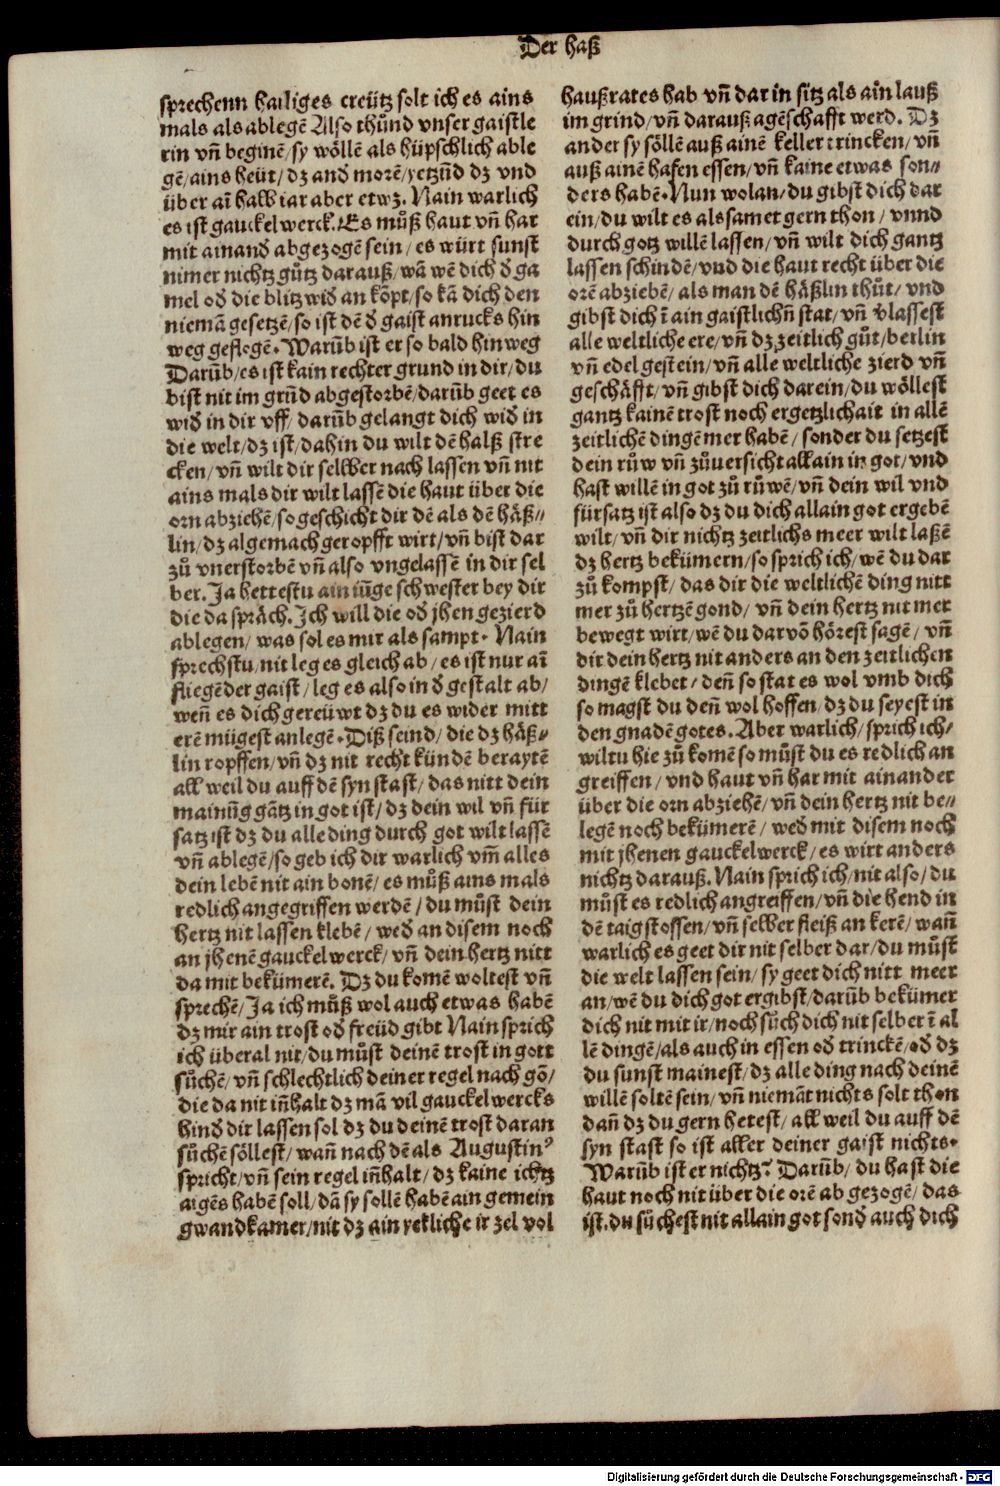 Der haß
sprechenn hailiges creütz solt ich es ains
mals als ablegē Also thůnd vnser gaistle
rin vñ beginē/sy wöllē als hüpschlich able
gē/ains heüt/ dz and morē/yetzūd dz vnd
über aī halb iar aber etwz. Nain warlich
es ist gauckel werck. Es můß haut vñ har
mit ainand abgezogē sein/ es würt sunst
nimer nichtz gůtz darauß/wā wē dich d ga
mel od die blitz wid an kōpt/so kā dich den
niemā gesetzē/so ist dē d gaist anrucks hin
weg geflogē. Warūb ist er so bald hinweg
Darūb/es ist kain rechter grund in dir/du
bist nit im grūd abgestorbē/darūb geet es
wid in dir vff/ darūb gelangt dich wid in
die welt/dz ist/dahin du wilt dē halß stre
cken/ vñ wilt dir selber nach lassen vñ nit
ains mals dir wilt lassē die haut über die
orn abziehē/so geschicht dir dē als dē häß⸗
lin/dz algemach geropfft wirt/vñ bist dar
zů vnerstorbē vñ also vngelassē in dir sel
ber. Ja hettestu ain iūge schwester bey dir
die da spräch. Ich will die od jhen gezierd
ablegen/ was sol es mir als sampt. Nain
sprechstu/nit leg es gleich ab/ es ist nur aī
fliegēder gaist/ leg es also in d gestalt ab/
weñ es dich gereüwt dz du es wider mitt
erē mügest anlegē. Diß seind/ die dz häß⸗
lin ropffen/vñ dz nit recht kündē beraytē
all weil du auff dē syn stast/ das nitt dein
mainūg gātz in got ist/ dz dein wil vñ für
satz ist dz du alle ding durch got wilt lassē
vñ ablegē/so geb ich dir warlich vm̄ alles
dein lebē nit ain bonē/ es můß ains mals
redlich angegriffen werdē/ du můst dein
hertz nit lassen klebē/ wed an disem noch
an jhenē gauckel werck/ vñ dein hertz nitt
da mit bekümerē. Dz du komē woltest vñ
sprechē/Ja ich můß wol auch etwas habē
dz mir ain trost od freüd gibt Nain sprich
ich überal nit/du můst deinē trost in gott
sůchē/ vñ schlechtlich deiner regel nach gō/
die da nit iñhalt dz mā vil gauckel wercks
hind dir lassen sol dz du deinē trost daran
sůchē söllest/ wañ nach dē als Augustinꝰ
spricht/vñ sein regel iñhalt/ dz kaine ichtz
aigēs habē soll/dā sy sollē habē ain gemein
gwandkamer/nit dz ain yetliche ir zel vol
haußrates hab vñ dar in sitz als ain lauß
im grind/vñ darauß agēschafft werd. Dz
ander sy söllē auß ainē keller trincken/vñ
auß ainē hafen essen/vñ kaine etwas son⸗
ders habē. Nun wolan/du gibst dich dar
ein/du wilt es alssamet gern thon/ vnnd
durch gotz willē lassen/vñ wilt dich gantz
lassen schindē/vnd die haut recht über die
orē abziebē/ als man dē häßlin thůt/ vnd
gibst dich ī ain gaistlichñ stat/ vñ vlassest
alle weltliche ere/vñ dz zeitlich gůt/berlin
vñ edel gestein/vñ alle weltliche zierd vñ
geschäfft/ vñ gibst dich darein/du wöllest
gantz kainē trost noch ergetzlichait in allē
zeitlichē dingē mer habē/ sonder du setzest
dein růw vñ zůuersicht allain in got/vnd
hast willē in got zů růwē/vñ dein wil vnd
fürsatz ist also dz du dich allain got ergebē
wilt/vñ dir nichtz zeitlichs meer wilt laßē
dz hertz bekümern/so sprich ich/wē du dar
zů kompst/ das dir die weltlichē ding nitt
mer zů hertzē gond/ vñ dein hertz nit mer
bewegt wirt/wē du darvō hörest sagē/ vñ
dir dein hertz nit anders an den zeitlichen
dingē klebet/ deñ so stat es wol vmb dich
so magst du deñ wol hoffen/dz du seyest in
den gnadē gotes. Aber warlich/sprich ich/
wiltu hie zů komē so můst du es redlich an
greiffen/ vnd haut vñ har mit ainander
über die orn abziehē/vñ dein hertz nit be⸗
legē noch bekümerē/ wed mit disem noch
mit jhenen gauckelwerck/es wirt anders
nichtz darauß. Nain sprich ich/nit also/du
můst es redlich angreiffen/vñ die hend in
dē taig stossen/vñ selber fleiß an kerē/wañ
warlich es geet dir nit selber dar/du můst
die welt lassen sein/sy geet dich nitt meer
an/wē du dich got ergibst/darūb bekümer
dich nit mit ir/noch sůch dich nit selber ī al
lē dingē/als auch in essen od trinckē/od dz
du sunst mainest/dz alle ding nach deinē
willē soltē sein/vñ niemāt nichts solt thon
dañ dz du gern hetest/ all weil du auff dē
syn stast so ist aller deiner gaist nichts.
Warūb ist er nichtz? Darūb/ du hast die
haut noch nit über die orē ab gezogē/das
ist. du sůchest nit allain got sond auch dich
Digitalisierung gefördert durch die Deutsche Forschungsgemeinschaft - DFG